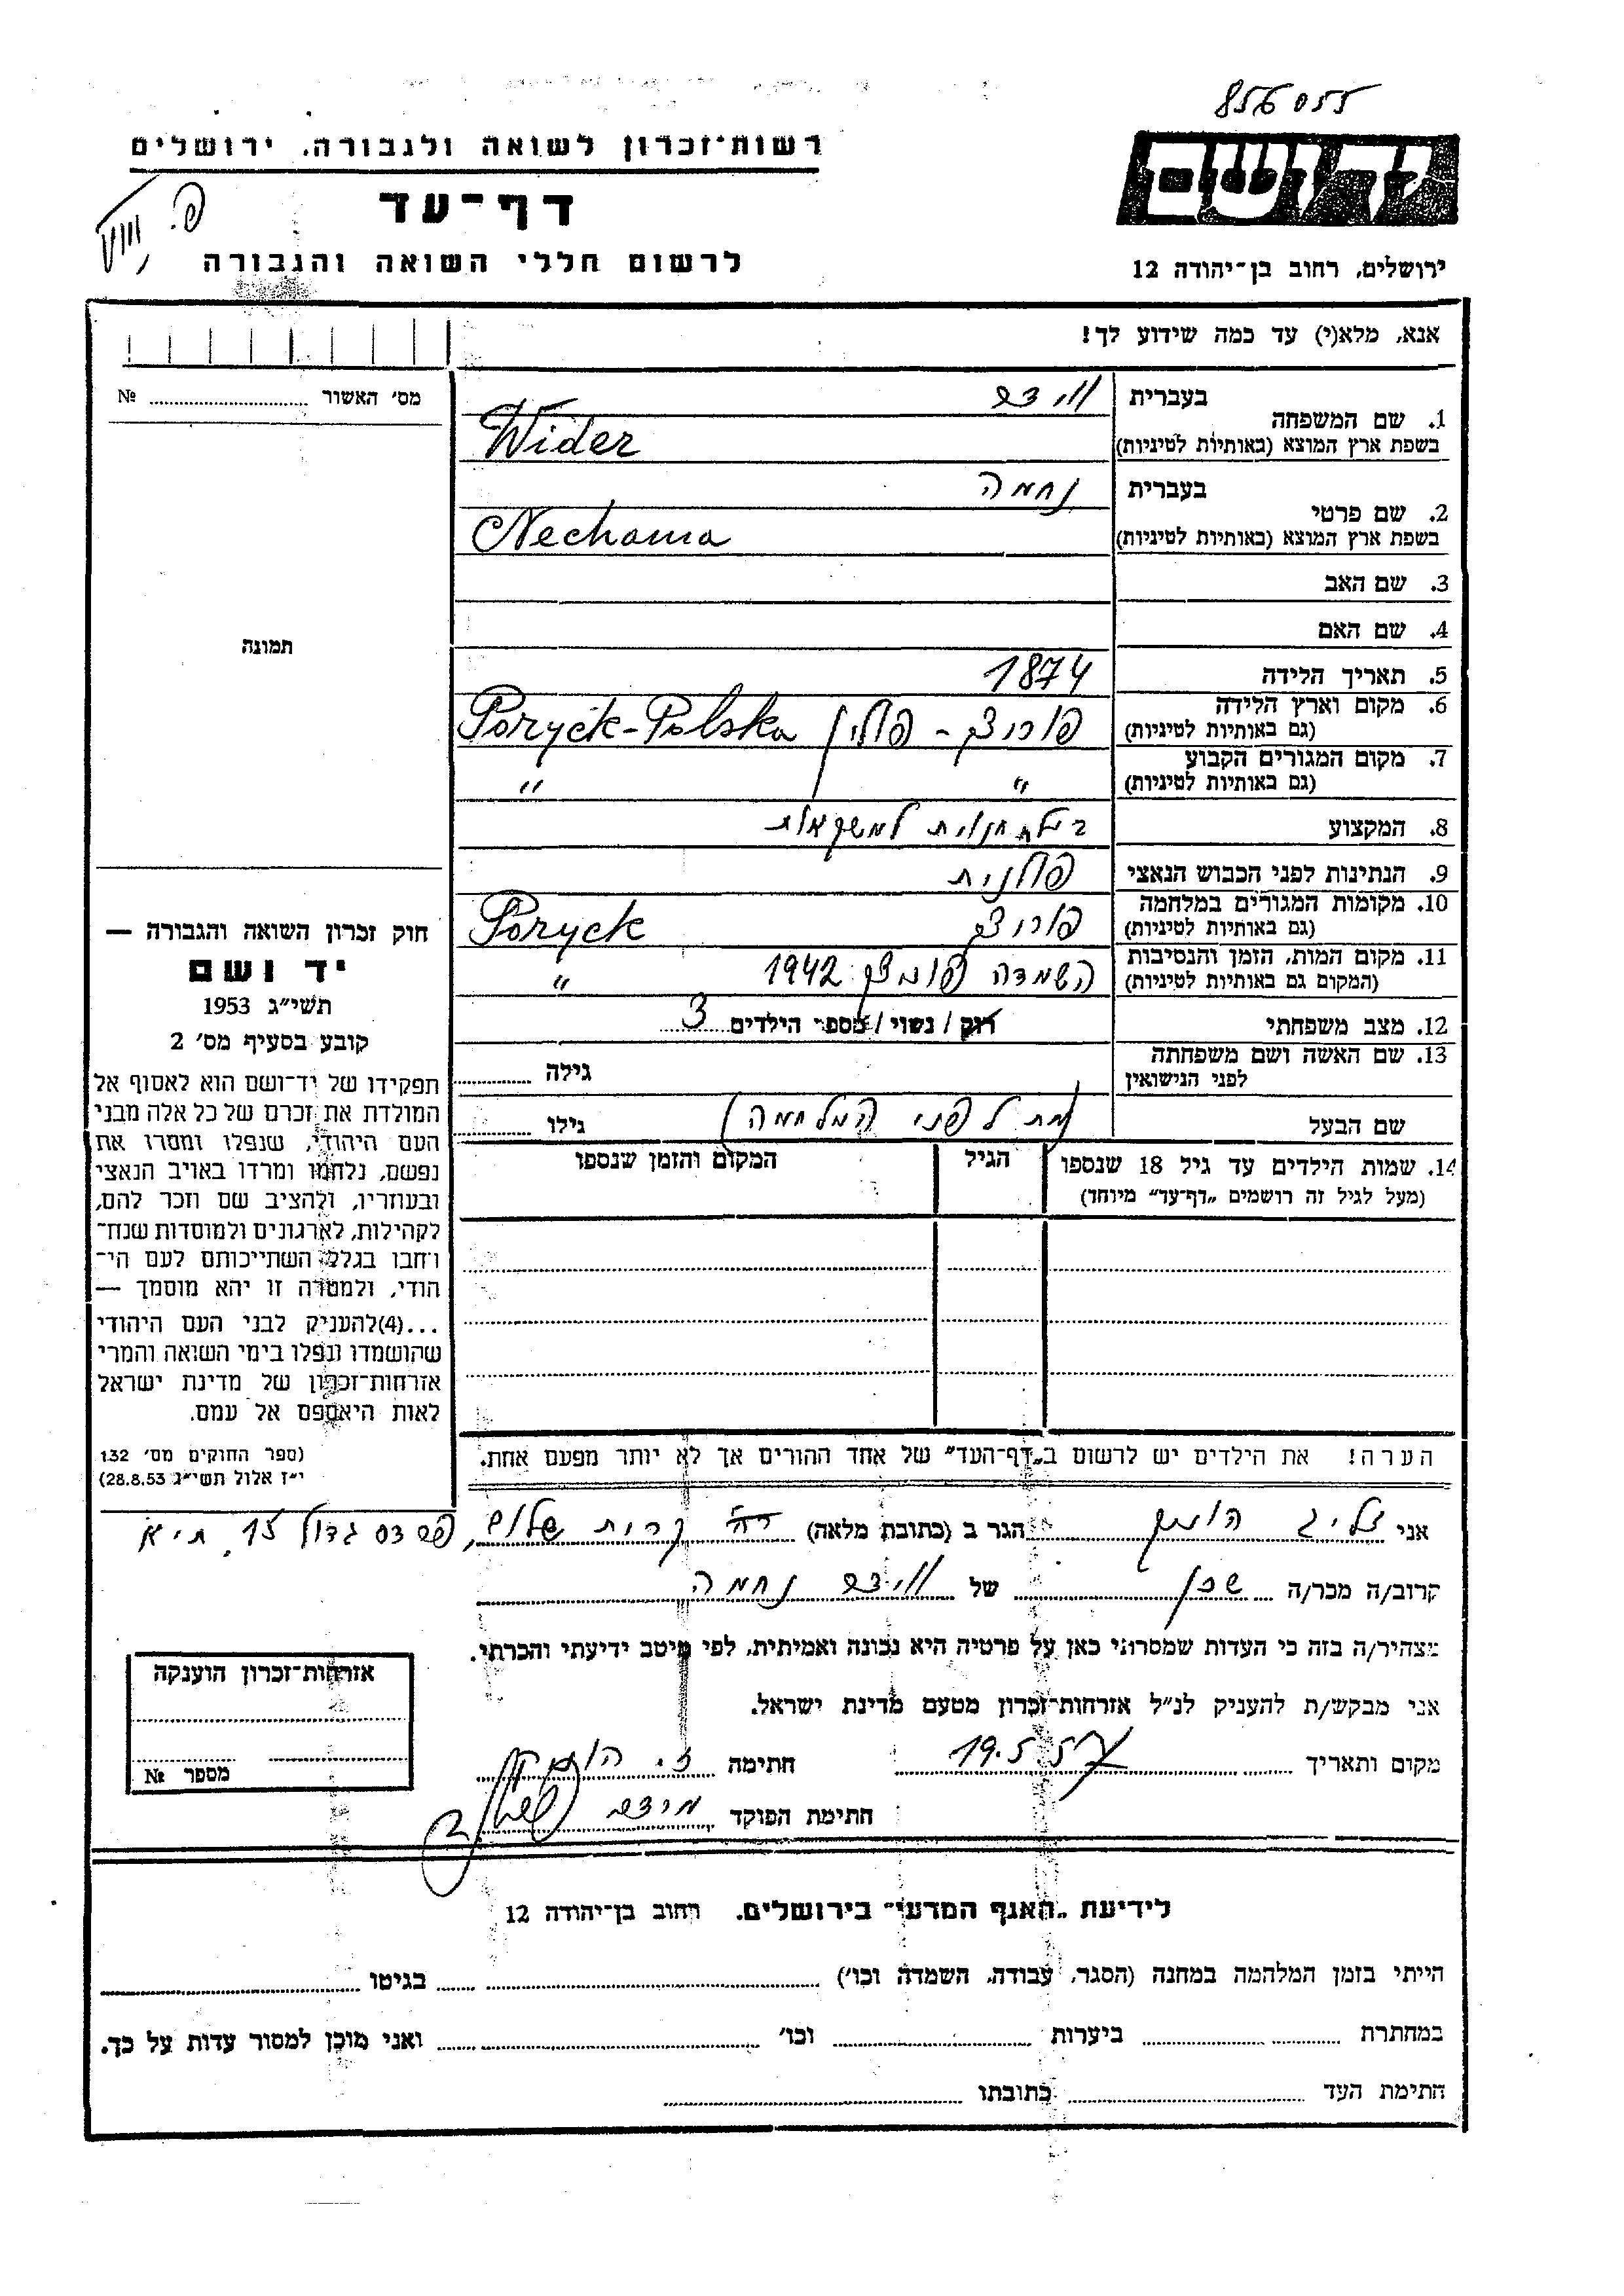 856055
רשות־זכרון לשואה ולגבורה, ירושלים
יד ושם
דף־עד
לרשום חללי השואה והגבורה
ירושלים, רחוב בן־יהודה 12
אנא, מלא(י) עד כמה שידוע לך!
מס׳ האשור № 
1. שם המשפחה בעברית וידר
בשפת ארץ המוצא (באותיות לטיניות) Wider
2. שם פרטי בעברית נחמה
בשפת ארץ המוצא (באותיות לטיניות) Nechama
3. שם האב
4. שם האם
תמונה
5. תאריך הלידה 1874
6. מקום וארץ הלידה (גם באותיות לטיניות) פוריצק - פולין Poryck-Polska
7. מקום המגורים הקבוע (גם באותיות לטיניות) " "
8. המקצוע בעלת חנות למשקאות
9. הנתינות לפני הכבוש הנאצי פולנית
10. מקומות המגורים במלחמה (גם באותיות לטיניות) פוריצק Poryck
11. מקום המות, הזמן והנסיבות (המקום גם באותיות לטיניות) השמדה פוריצק 1942 "
12. מצב משפחתי רווק / נשוי / מספר הילדים 3
13. שם האשה ושם משפחתה לפני הנישואין גילה
שם הבעל (מת לפני המלחמה) גילו
14. שמות הילדים עד גיל 18 שנספו הגיל המקום והזמן שנספו
(מעל לגיל זה רושמים „דף־עד" מיוחד)
חוק זכרון השואה והגבורה —
יד ושם
תשי״ג 1953
קובע בסעיף מס׳ 2
תפקידו של יד־ושם הוא לאסוף אל
המולדת את זכרם של כל אלה מבני
העם היהודי, שנפלו ומסרו את
נפשם, נלחמו ומרדו באויב הנאצי
ובעוזריו, ולהציב שם וזכר להם,
לקהילות, לארגונים ולמוסדות שנח־
רבו בגלל השתייכותם לעם הי־
הודי, ולמטרה זו יהא מוסמך —
...(4)להעניק לבני העם היהודי
שהושמדו ונפלו בימי השואה והמרי
אזרחות־זכרון של מדינת ישראל
לאות היאספם אל עמם.
(ספר החוקים מס׳ 132
י״ז אלול תשי״ג 28.8.53)
הערה! את הילדים יש לרשום ב„דף־העד" של אחד ההורים אך לא יותר מפעם אחת.
אני זליג הגר ב (כתובת מלאה) קרית שלום, פרדס גדול 15, ת״א
קרוב/ה מכר/ה שכן של וידר נחמה
מצהיר/ה בזה כי העדות שמסרתי כאן על פרטיה היא נכונה ואמיתית, לפי מיטב ידיעתי והכרתי.
אני מבקש/ת להעניק לנ״ל אזרחות־זכרון מטעם מדינת ישראל.
מקום ותאריך 19.5.57 חתימה
חתימת הפוקד
אזרחות־זכרון הוענקה
מספר №
לידיעת „האגף המדעי" בירושלים, רחוב בן־יהודה 12
הייתי בזמן המלהמה במחנה (הסגר, עבודה, השמדה וכו׳) בגיטו
במחתרת ביערות וכו׳ ואני מוכן למסור עדות על כך.
חתימת העד כתובתו